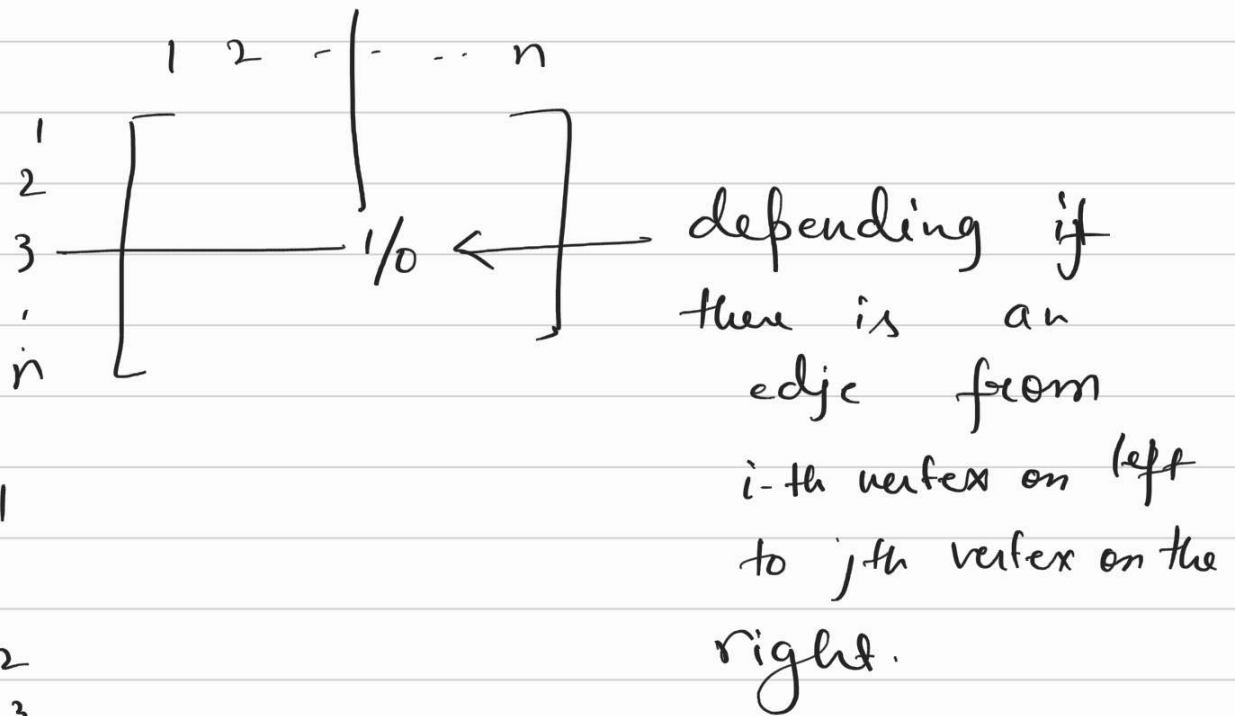 1 2 - - -- n
1
2
3 1/0 ← depending if
there is an
n edje from
i-th vertex on left
1
to jth vertex on the
2 right.
3